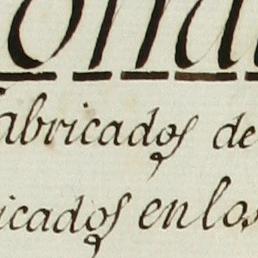 fabricados de
icados en los